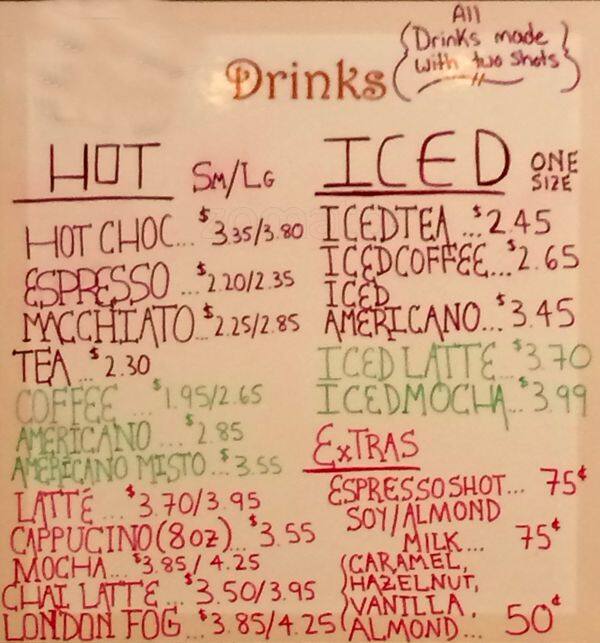 All
Drinks made
with two shots
Drinks
HOT SM/LG
HOT CHOC... $3.35/3.80
ESPRESSO ... $2.20/2.35
MACCHIATO... $2.25/2.85
TEA ... $2.30
COFFEE ... $1.95/2.65
AMERICANO ... $2.85
AMERICANO MISTO... $3.55
LATTÉ ... $3.70/3.95
CAPPUCINO (8oz)... $3.55
MOCHA... $3.85/4.25
CHAI LATTE ... $3.50/3.95
LONDON FOG... $3.85/4.25
ICED ONE SIZE
ICED TEA ... $2.45
ICED COFFEE... $2.65
ICED
AMERICANO... $3.45
ICED LATTE $3.70
ICED MOCHA... $3.99
ExTRAS
ESPRESSO SHOT... 75¢
SOY/ALMOND
MILK... 75¢
(CARAMEL,
HAZELNUT,
VANILLA,
ALMOND... 50¢